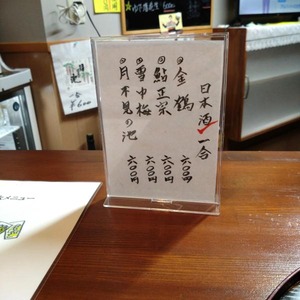 日本酒 一合
金鶴 六〇〇円
鮎正宗 六〇〇円
雪中梅 六〇〇円
月不見の池 六〇〇円
メニュー